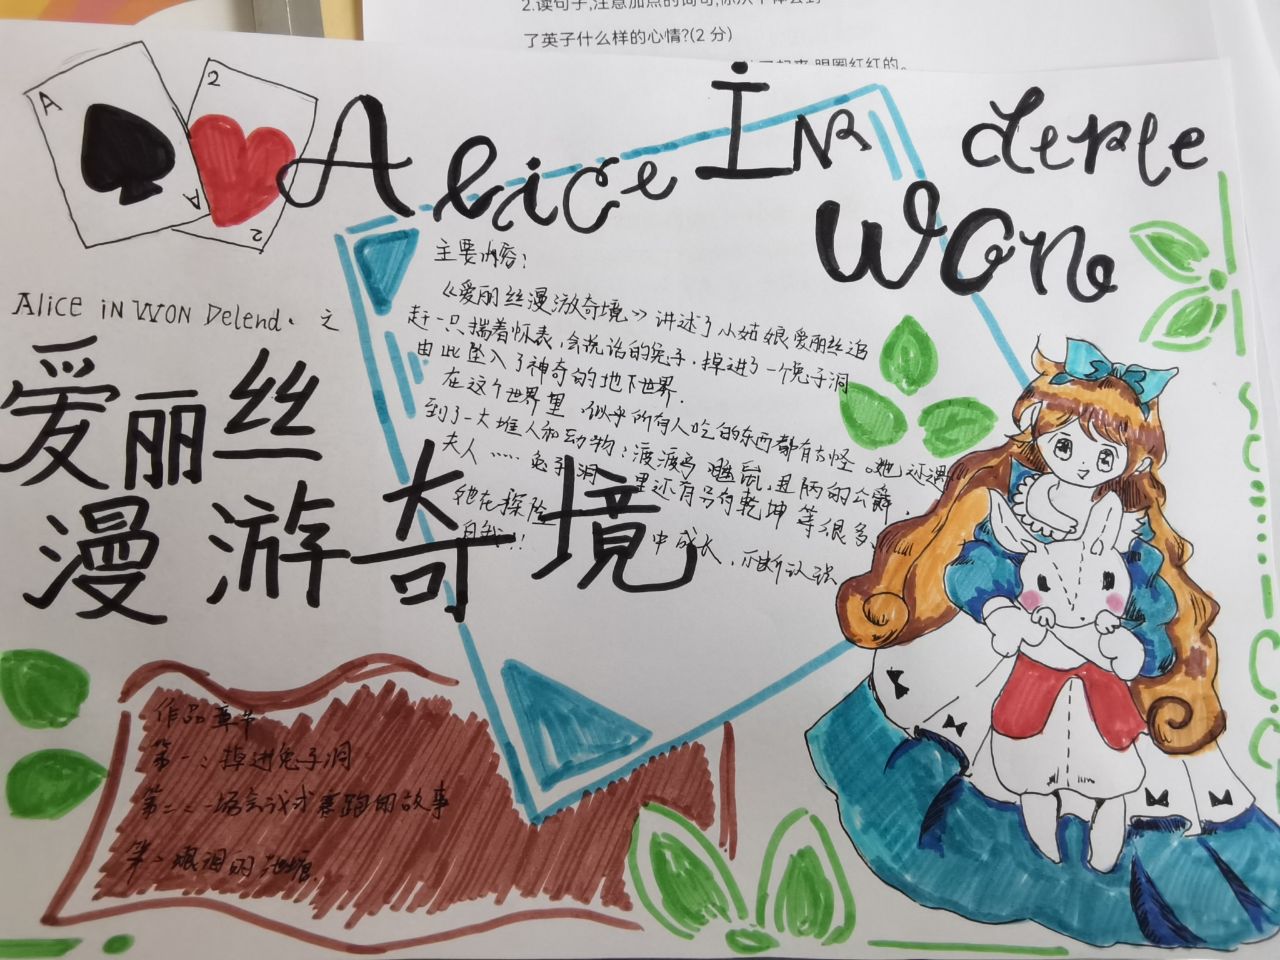 了英子什么样的心情?(2分)
A
2
Alice In derle
Won
A
2
主要内容:
Alice iN WON Delend. 之
《爱丽丝漫游奇境》讲述了小姑娘爱丽丝追
赶一只揣着怀表,会说话的兔子.掉进了一个兔子洞
由此坠入了神奇的地下世界.
在这个世界里.似乎所有人吃的东西都有古怪。她还遇
到了一大堆人和动物:渡渡鸟 睡鼠,丑陋的公爵.
夫人……兔子洞 里还有
等很多.
她在探险
中成长,不断认识
自我!!
爱丽丝
漫游奇境
作品章节
第一:掉进兔子洞
第二:一场会议或赛跑的故事
第:眼泪的池塘.